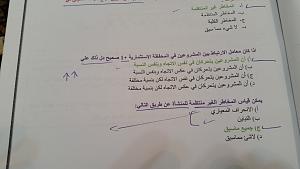 أ. المخاطر غير المنتظمة
ب. المخاطر المنتظمة
ج. المخاطر الكلية
د. لا شيء مما سبق
اذا كان معامل الارتباط بين المشروعين في المحفظة الاستثمارية +1 صحيح يدل ذلك علي
أ) أن المشروعين يتحركان في نفس الاتجاه وبنفس النسبة
ب) أن المشروعين يتحركان في عكس الاتجاه وبنفس النسبة
ج) أن المشروعين يتحركان في نفس الاتجاه لكن بنسبة مختلفة
د) أن المشروعين يتحركان في عكس الاتجاه لكن بنسبة مختلفة
يمكن قياس المخاطر الغير منتظمة للمنشأة عن طريق التالي:
أ) الانحراف المعياري
ب) التباين
ج) جميع ماسبق
د) لاشئ مماسبق